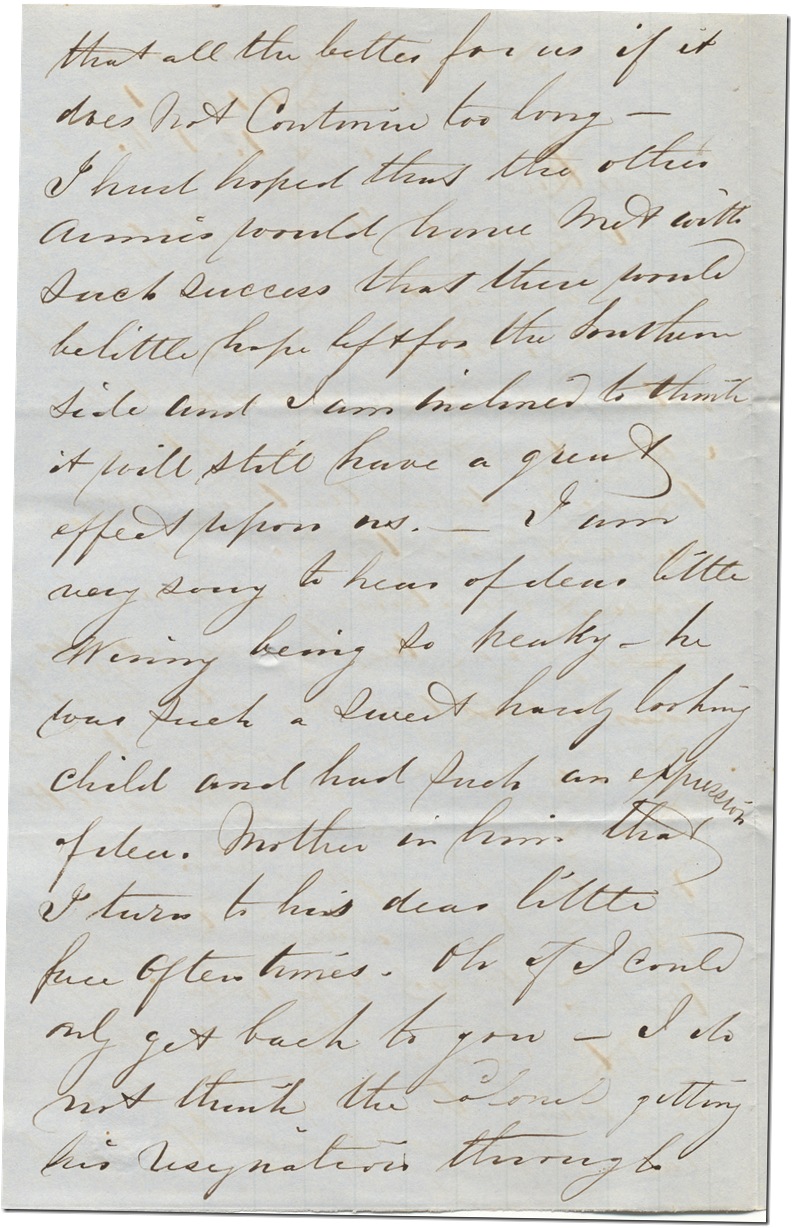 that all the better for us if it
does not Continue too long —
I had hoped that the other
armies would have met with
such success that there would
be little hope left for the Southern
side and I am inclined to think
it will still have a great
effect upon us. — I am
very sorry to hear of dear little
being so peaky — he
was such a sweet hardy looking
child and had such an expression
of dear Mother in him that
I turn to his dear little
face Often times. Oh if I could
only get back to you — I do
not think the Colonel getting
his resignation through